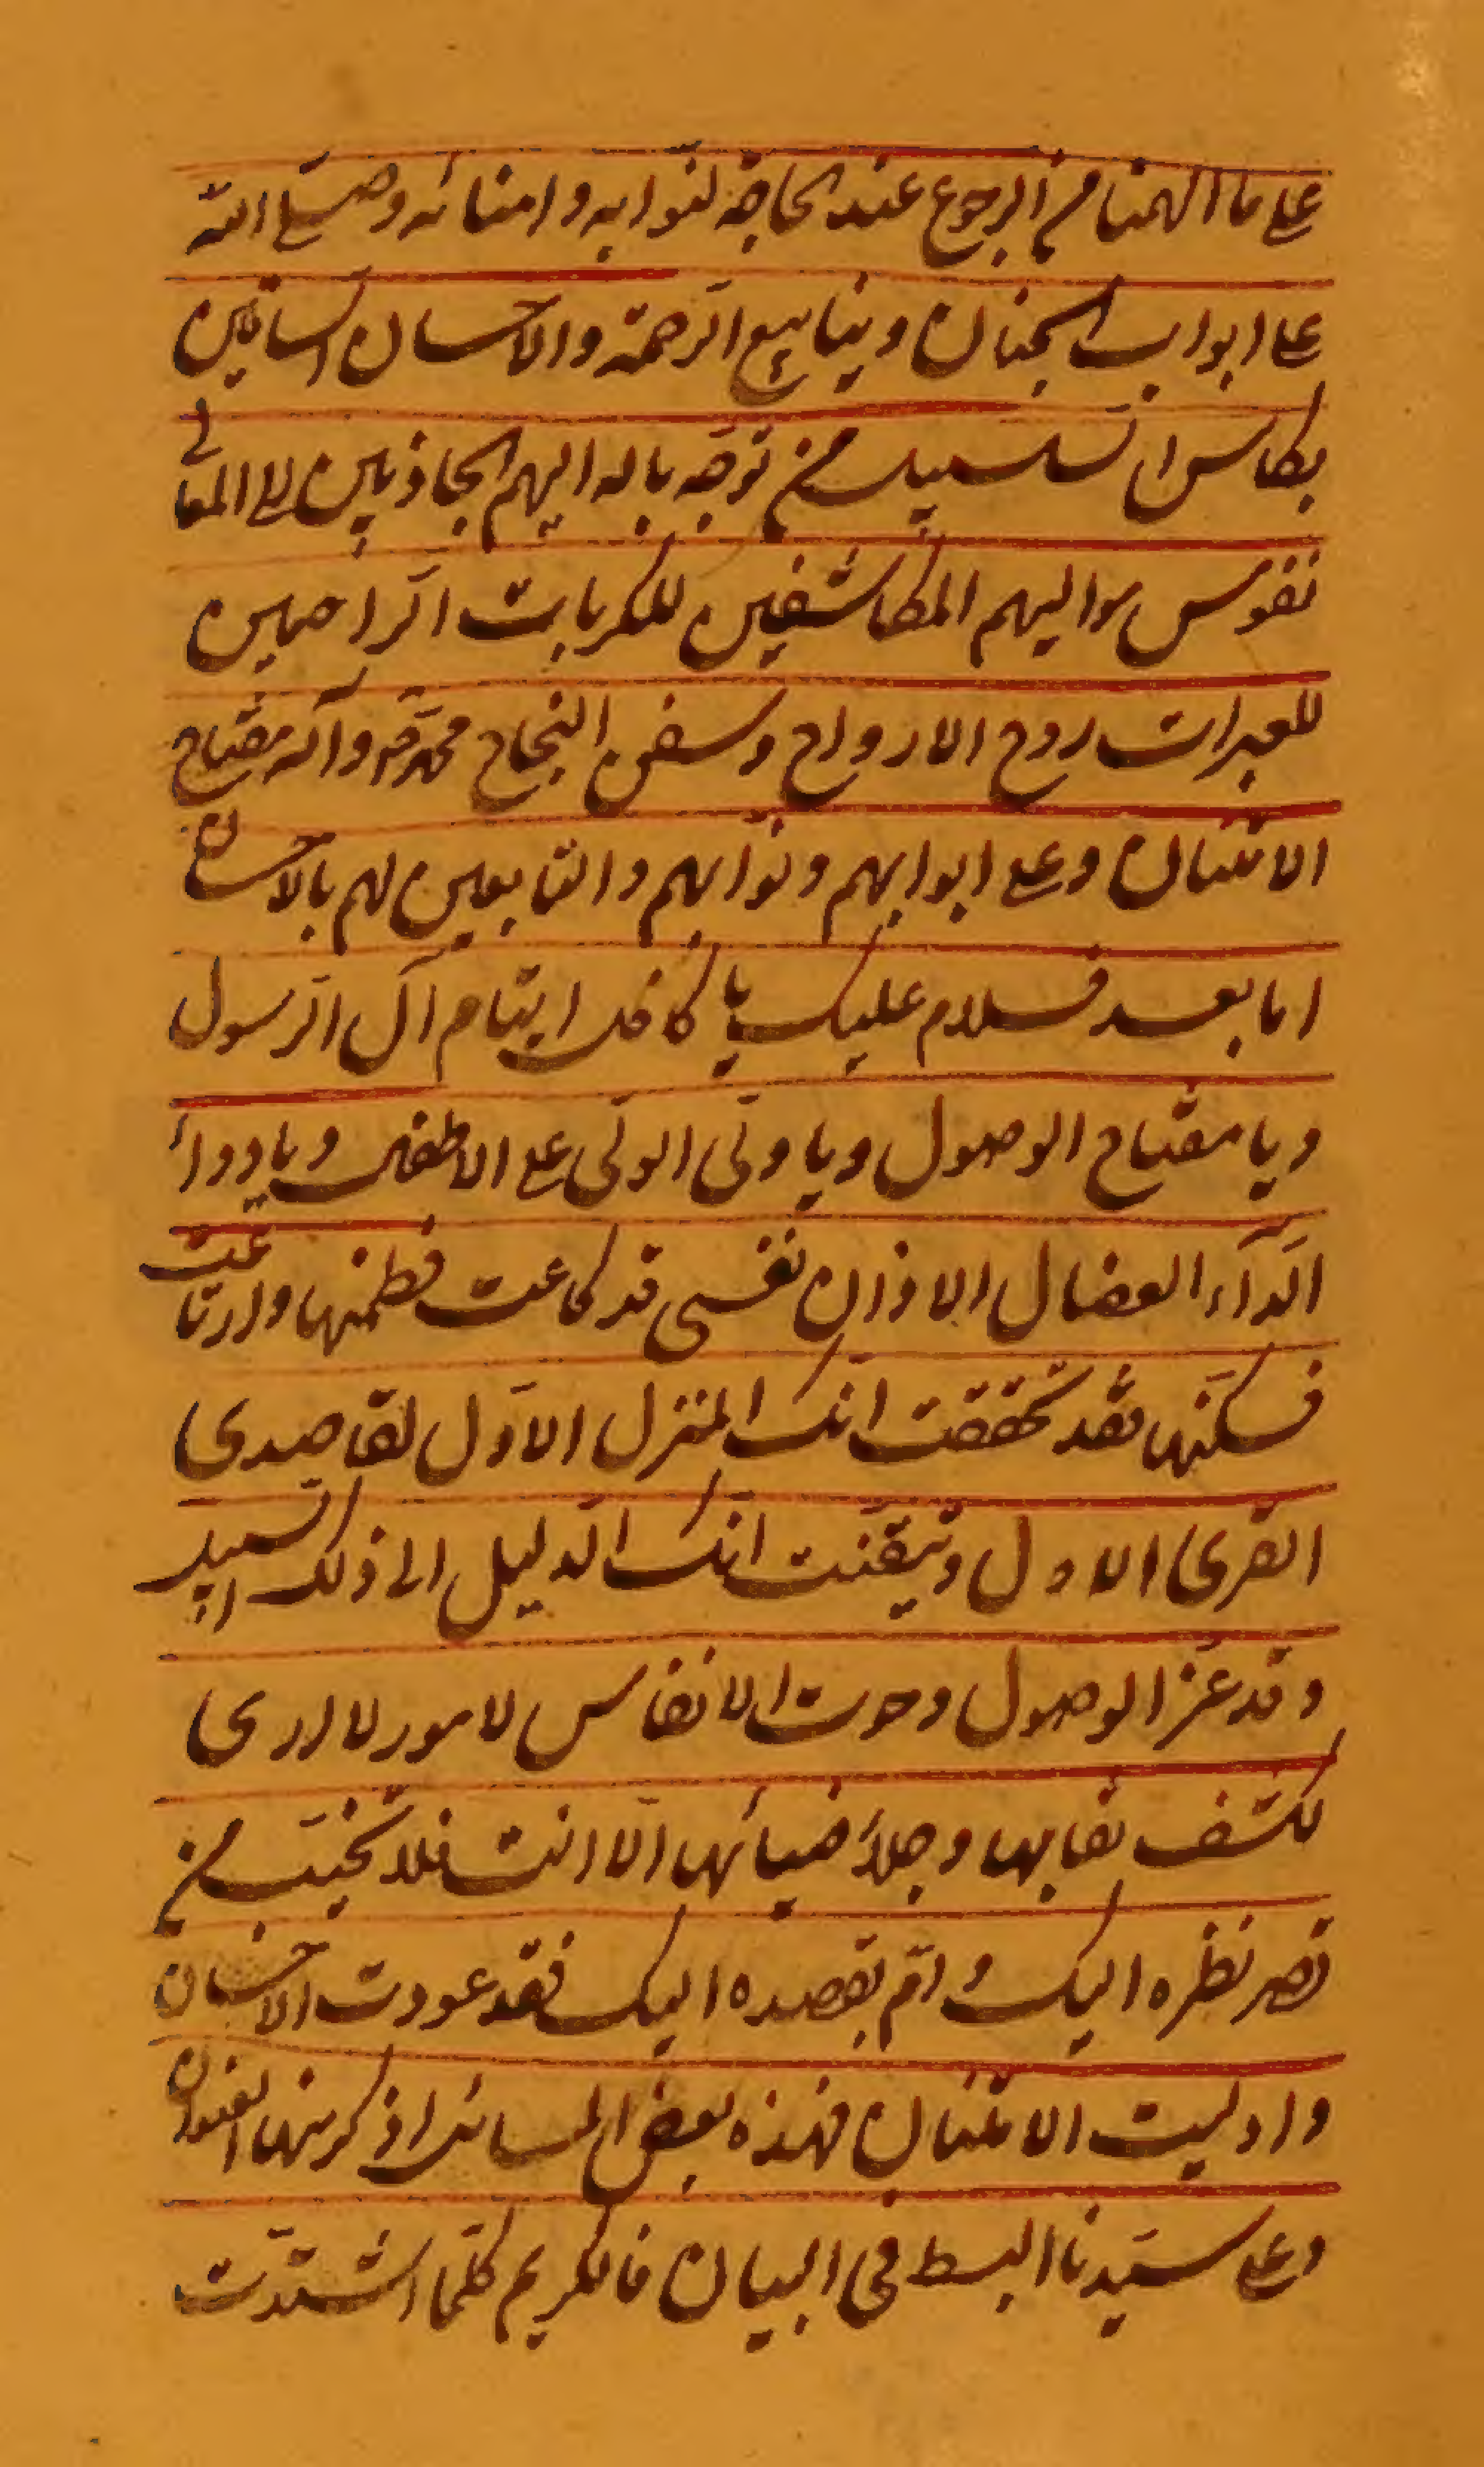 على ما الهمنا من الرجوع عند الحاجة لنوّابه وامنائه وصلى الله
على ابواب الجنان وينابيع الرحمة والاحسان الساقين
بكاس السلسبيل من توجّه باله اليهم الجاذبين الى المعالى
نفوس موالیهم الكاشفين للكربات الرّاحمين
للعبرات روح الارواح وسفن النجاح محمد وآله مفتاح
الامتنان وعلى ابوابهم ونوّابهم والتابعين لهم بالاحسان
اما بعد فسلام عليك يا كافل ايتام آل الرسول
ويا مفتاح الوصول ويا ولى الولى على الاطفال ويا دواء
الدآء العضال الا وان نفسى قد كاعت فطمنها وارتاعت
فسكنها فقد تحققت انك المنزل الاول لقاصدى
القرى الاول وتيقنت انك الدليل الى ذلك السبيل
وقد عز الوصول وحرت الانفاس لامور لا ارى
لكشف نقابها وجلاء ضيائها الا انت فلا تخيب من
قصر نظره اليك وامّ بقصده اليك فقد عودت الاحسان
واوليت الامتنان فهذه بعض المسائل اذكر منها العنوان
وعلى سيدنا البسط فى البيان فالكريم كلما اشتدت